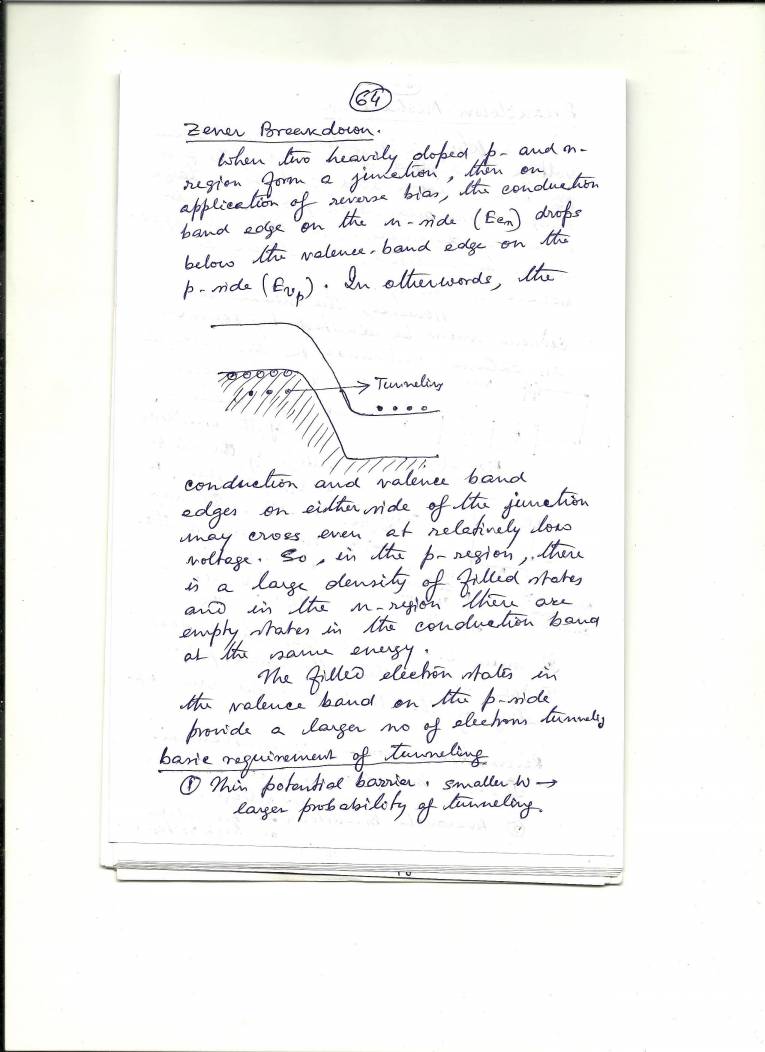 64
Zener Breakdown.
When two heavily doped p- and n-
region form a junction, then on
application of reverse bias, the conduction
band edge on the n-side (Ecn) drops
below the valence-band edge on the
p-side (Evp). In otherwords, the
Tunneling
conduction and valence band
edges on either side of the junction
may cross even at relatively low
voltage. So, in the p-region, there
is a large density of filled states
and in the n-region there are
empty states in the conduction band
at the same energy.
The filled electron states in
the valence band on the p-side
provide a larger no of electrons tunneling
basic requirement of tunneling
① Thin potential barrier. smaller W →
larger probability of tunneling.